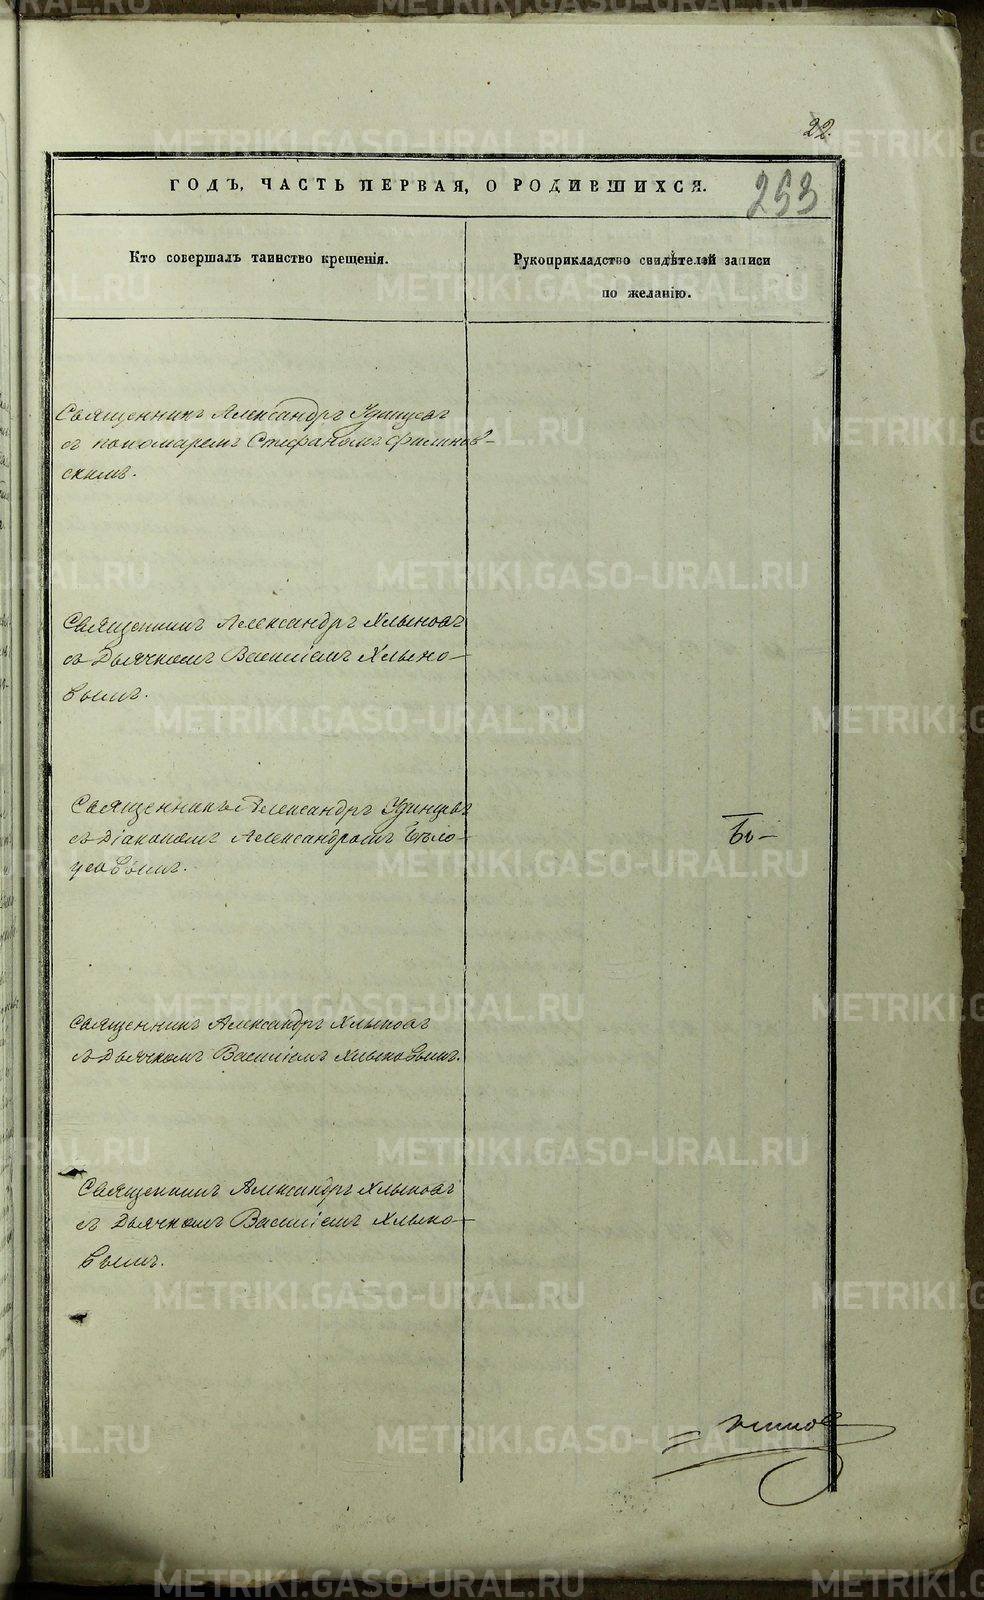 22.
ГОДЪ, ЧАСТЬ ПЕРВАЯ, О РОДИВШИХСЯ.
253
Кто совершалъ таинство крещенія.
Рукоприкладство свидѣтелей записи
по желанію.
Священникъ Александръ Удинцевъ
съ пономаремъ Стефаномъ Филинов-
скимъ.
Священникъ Александръ Хлыновъ
съ Дьячкомъ Василіемъ Хлыно-
вымъ.
Священникъ Александръ Удинцевъ
съ Діакономъ Александромъ Бѣло-
усовымъ.
Священникъ Александръ Хлыновъ
съ Дьячкомъ Василіемъ Хлыновымъ.
Священникъ Александръ Хлыновъ
съ Дьячкомъ Василіемъ Хлыно-
вымъ.
METRIKI.GASO-URAL.RU